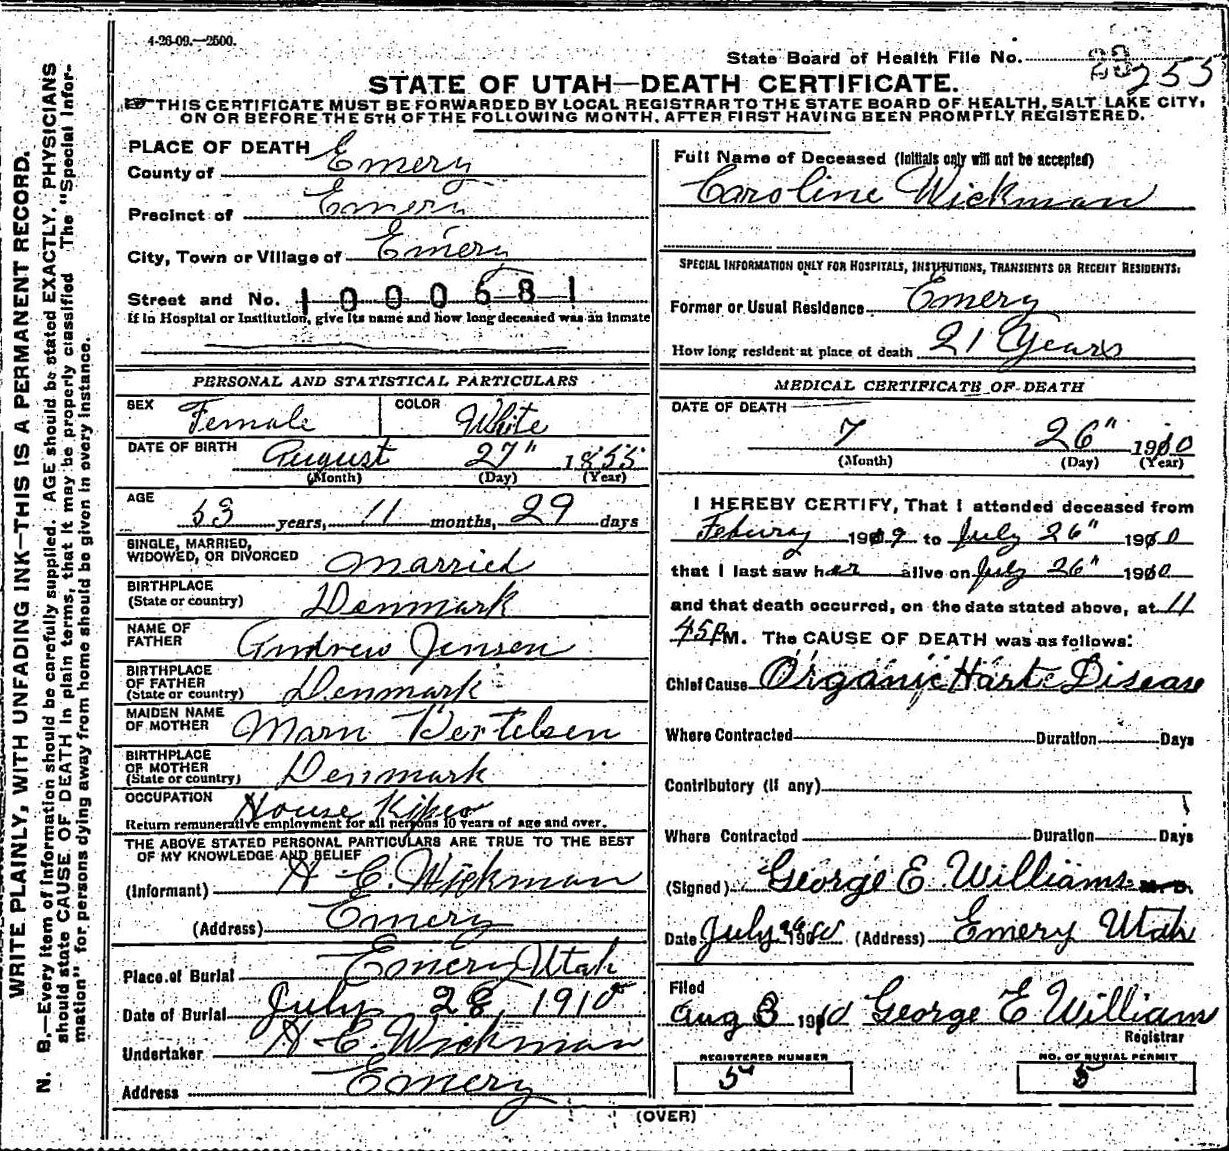 4-26-09.—2500.
State Board of Health File No. 255
STATE OF UTAH—DEATH CERTIFICATE.
THIS CERTIFICATE MUST BE FORWARDED BY LOCAL REGISTRAR TO THE STATE BOARD OF HEALTH, SALT LAKE CITY,
ON OR BEFORE THE 5TH OF THE FOLLOWING MONTH, AFTER FIRST HAVING BEEN PROMPTLY REGISTERED.
WRITE PLAINLY, WITH UNFADING INK—THIS IS A PERMANENT RECORD.
N. B.—Every item of information should be carefully supplied. AGE should be stated EXACTLY, PHYSICIANS
should state CAUSE OF DEATH in plain terms, that it may be properly classified. The "Special Infor-
mation" for persons dying away from home should be given in every instance.
PLACE OF DEATH
County of Emery
Precinct of Emery
City, Town or Village of Emery
Street and No. 1000681
If in Hospital or Institution, give its name and how long deceased was an inmate
PERSONAL AND STATISTICAL PARTICULARS
SEX Female COLOR White
DATE OF BIRTH August 27" 1855
(Month) (Day) (Year)
AGE 53 years, 11 months, 29 days
SINGLE, MARRIED,
WIDOWED, OR DIVORCED Married
BIRTHPLACE
(State or country) Denmark
NAME OF
FATHER Andrew Jensen
BIRTHPLACE
OF FATHER
(State or country) Denmark
MAIDEN NAME
OF MOTHER Marn Bertelsen
BIRTHPLACE
OF MOTHER
(State or country) Denmark
OCCUPATION House
Return remunerative employment for all persons 10 years of age and over.
THE ABOVE STATED PERSONAL PARTICULARS ARE TRUE TO THE BEST
OF MY KNOWLEDGE AND BELIEF
(Informant) H C. Wickman
(Address) Emery
Place of Burial Emery Utah
Date of Burial July 28, 1910
Undertaker H C. Wickman
Address Emery
Full Name of Deceased (Initials only will not be accepted)
Caroline Wickman
SPECIAL INFORMATION ONLY FOR HOSPITALS, INSTITUTIONS, TRANSIENTS OR RECENT RESIDENTS:
Former or Usual Residence Emery
How long resident at place of death 21 Years
MEDICAL CERTIFICATE OF DEATH
DATE OF DEATH
7 26" 1910
(Month) (Day) (Year)
I HEREBY CERTIFY, That I attended deceased from
Febury 1909 to July 26" 1910
that I last saw her alive on July 26" 1910
and that death occurred, on the date stated above, at 11
45 P M. The CAUSE OF DEATH was as follows:
Chief Cause Organic Harte Disease
Where Contracted Duration Days
Contributory (if any)
Where Contracted Duration Days
(Signed) George E. Williams M. D.
Date July 1910 (Address) Emery Utah
Filed
Aug 3 1910 George E Williams
Registrar
REGISTERED NUMBER
5
NO. OF BURIAL PERMIT
5
(OVER)